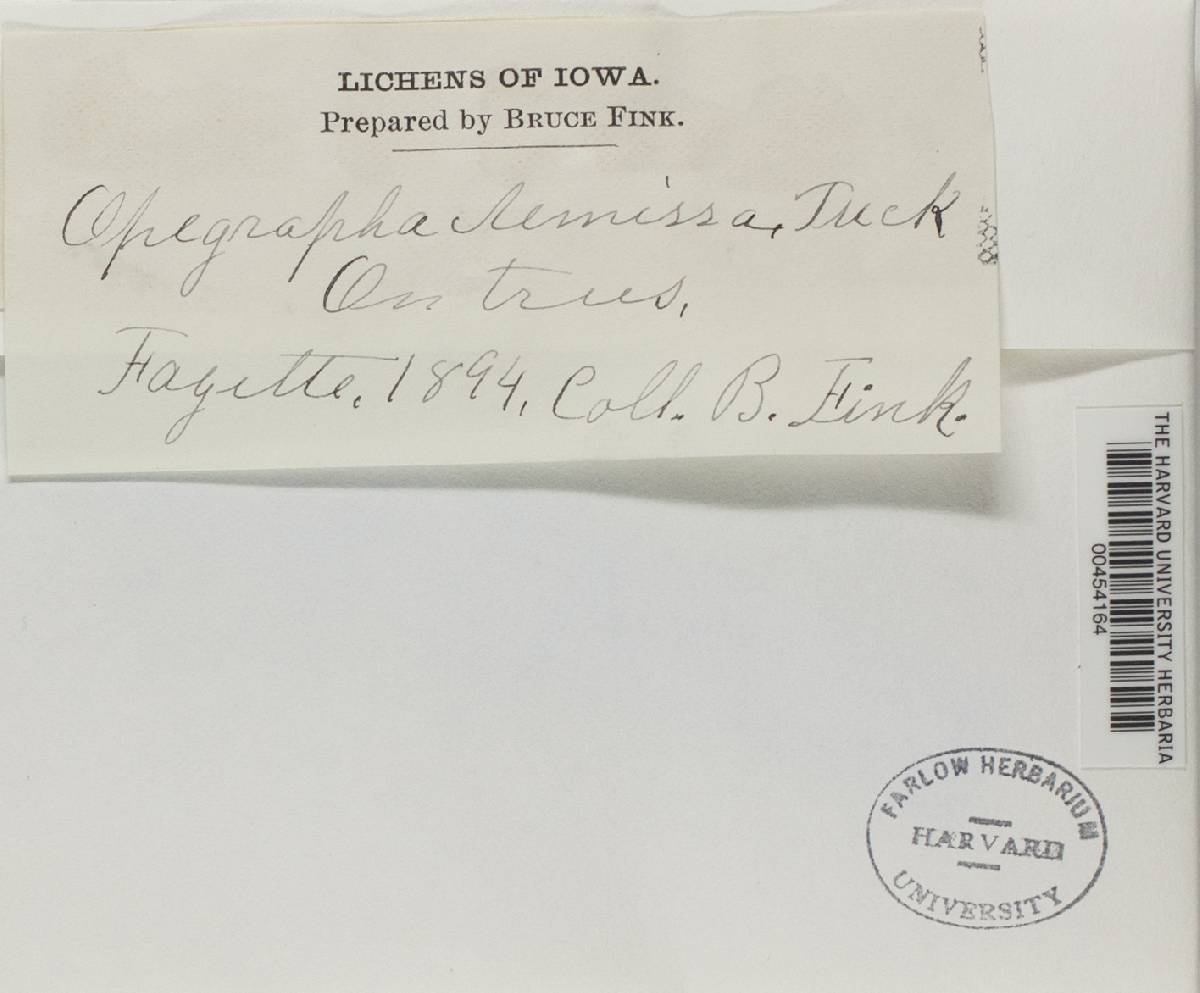 LICHENS OF IOWA.
Prepared by BRUCE FINK.
Opegrapha demissa, Tuck
On trees,
Fayette, 1894, Coll. B. Fink.
THE HARVARD UNIVERSITY HERBARIA
00454164
FARLOW HERBARIUM
HARVARD
UNIVERSITY